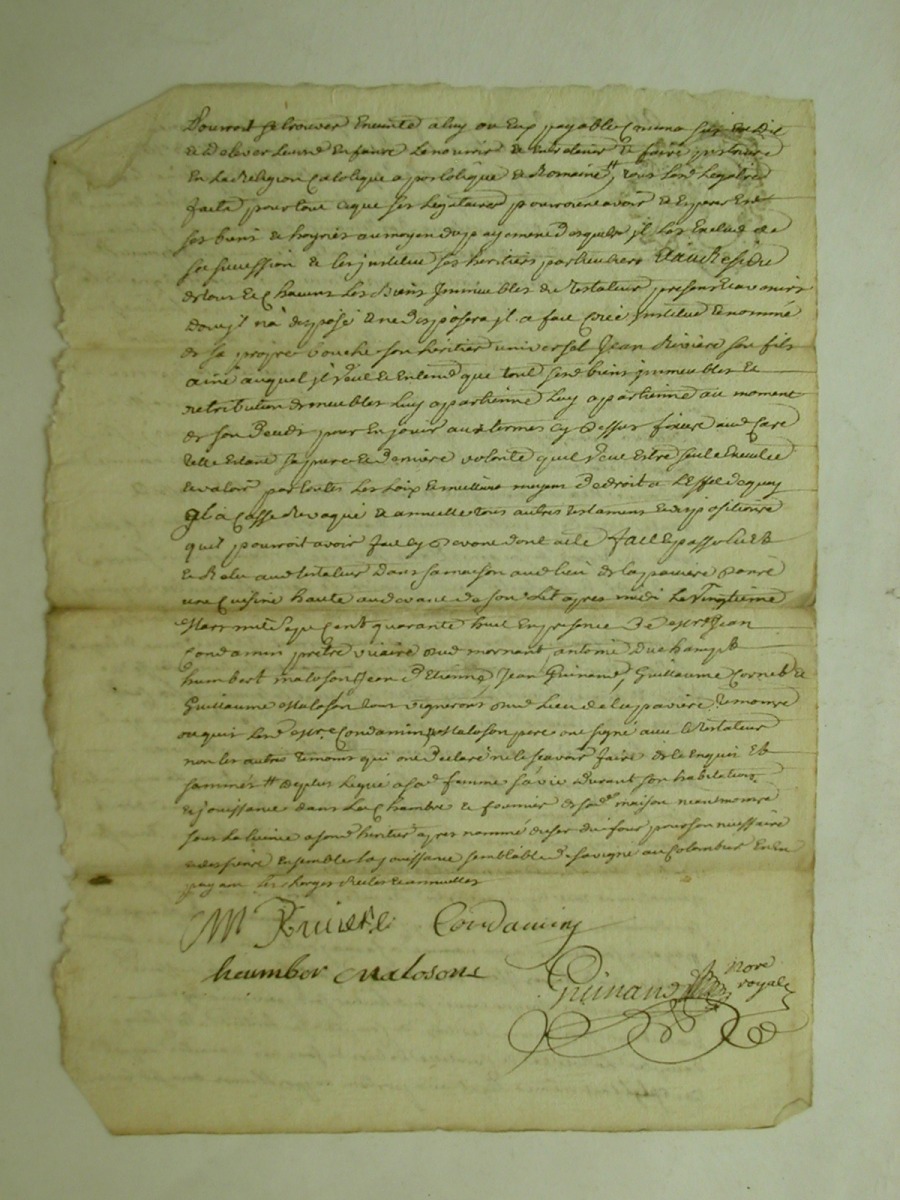 pourroit se trouver Enceinte a luy ou Eux payable Comme sus Est Dit
& d'Elever leurd Enfance le nourrir & Entretenir & faire instruire
En la Religion Catolique apostolique & Romaine # tous lesd Legats
faits pour tout ce que ses legataires pourroient avoir & Esperer En
ses biens & hoyries au moyen du payement desquels jl les Exclud de
sa succession & les jnstitue ses heritiers particuliers Et au Residu
de tous & Chacuns les Biens jmmeubles du testateur presens & avenirs
dont jl n'a disposé & ne disposera jl a fait Créé jnstitué & nommé
de sa propre bouche son heritier universel Jean Riviere son fils
ainé auquel jl Veut & Entend que tous sesd biens jmmeubles Et
retribution de meubles luy apartienne luy apartienne au moment
de son deces pour En jouir aux termes cy dessus
telle Estant sa pure & derniere volonté quil Veut Estre suile Executée
& valoir par toutes les Loix & meilleurs moyens de droit a L'effet de quoy
jl a Cassé Revoqué & annullé tous autres testamens & dispositions
quil pourroit avoir fait Cy devant dont acte fait & passé lu &
& Relu aud testateur dans sa maison aud lieu de la paviere dans
une Cuisine haute au devant de son Lit apres midi le Vingtieme
Mars mil Sept Cent quarante huit En presence de Mre Jean
Condamin prêtre vicaire dud mornant antoine Duchamp &
humbert maloson Jean d'Etienne, Jean Guinand, Guillaume Cornet &
Guillaume Maloson tous vignerons dud Lieu de la paviere temoins
ou quis lesd Mre Condamin & Maloson pere ont signé avec le testateur
non les autres temoins qui ont declaré ne le scavoir faire de ce Enquis Et
sommés # de plus legué a sad femme sa vie durant son habitation
& jouissance dans la Chambre & fournier de sad maison neantmoins
sous la licence a sond heritier apres nommé d'user du four pour son necessaire
& des siens Ensemble la jouissance semblable de sa vigne au Colombier En En
payant les charges Reelles & annuelles
M Riviere Condamin
heumber maloson
Guinand nore
royal